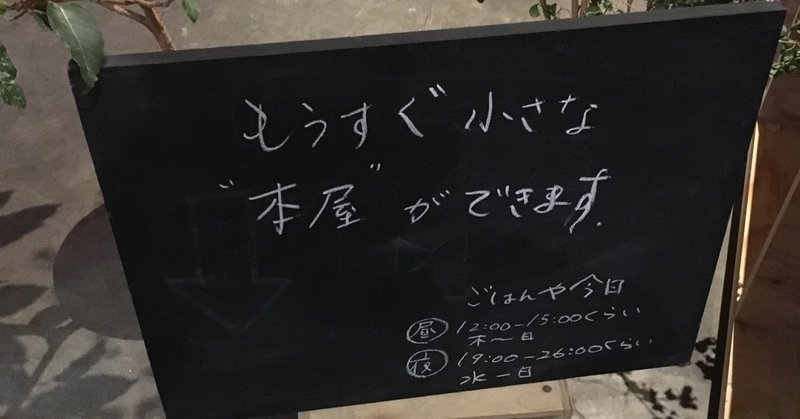 もうすぐ小さな
"本屋"ができます.
ごはんや今日
昼 12:00-15:00くらい
木〜日
夜 19:00-26:00くらい
水-日